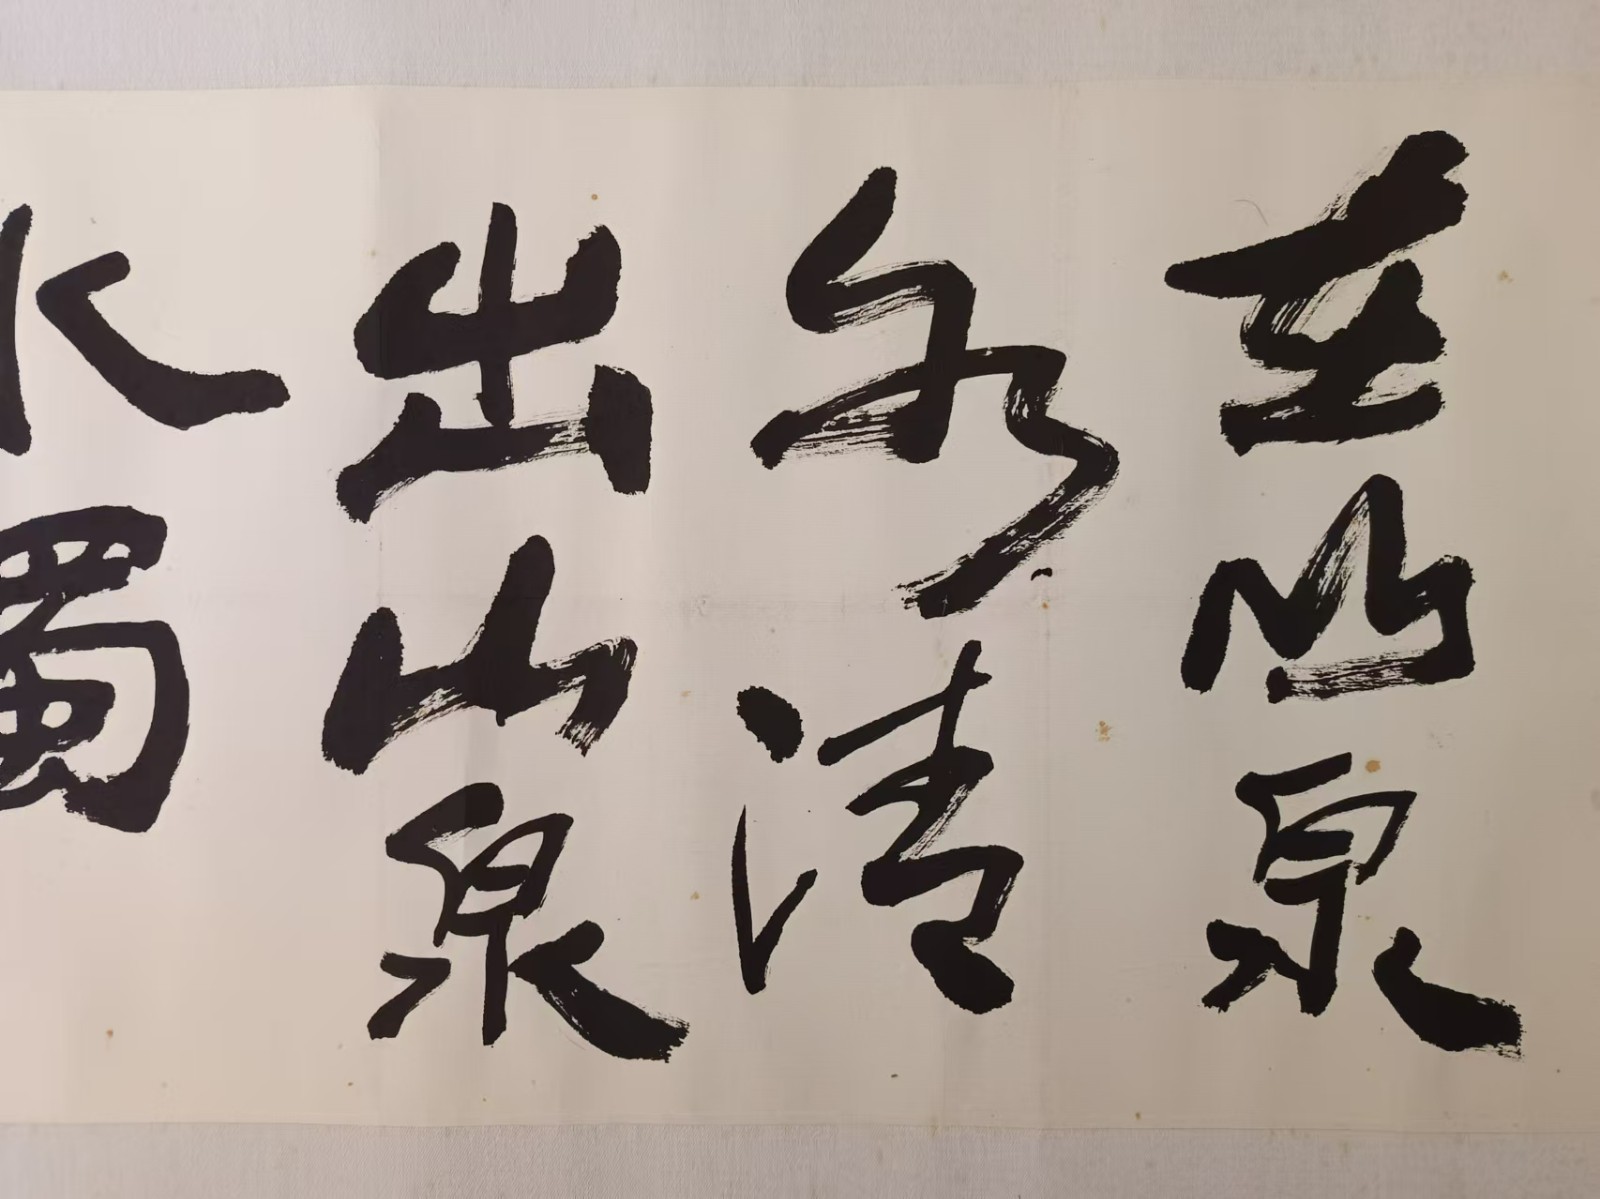 在山泉
水清
出山泉
水濁